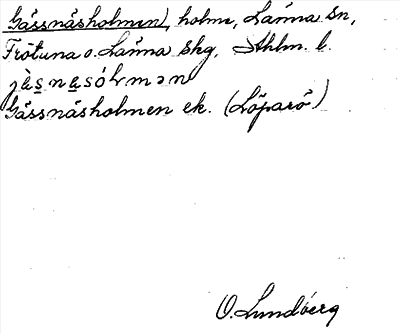 Gässnäsholmen, holme, Länna sn,
Frötuna o. Länna skg, Sthlm. l.
jäsnasólmən
Gässnäsholmen ek. (Löparö)
O. Lundberg